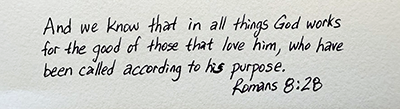 And we know that in all things God works
for the good of those that love him, who have
been called according to his purpose.
Romans 8:28